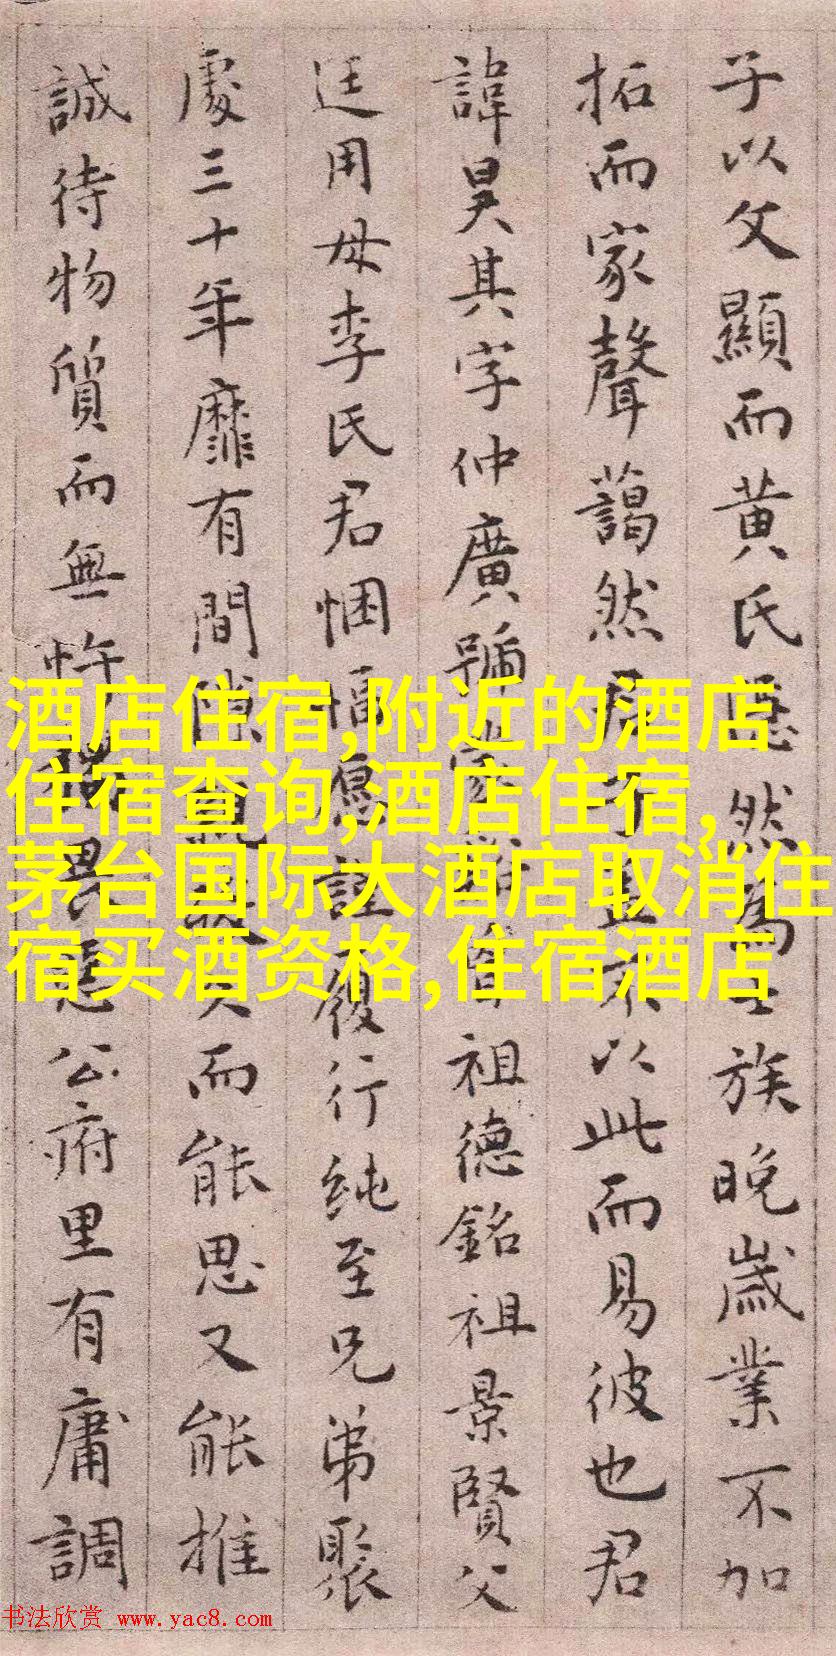 子以文顯而黃氏然為士族晚歲業不加
拓而家聲藹然君子且不以此而易彼也君
諱昊其字仲廣號家曾祖德銘祖景賢父
廷用母李氏君悃愊謹履行純至兄弟聚
處三十年靡有間隙而能思又能推
誠待物質而無忤畏公府里有庸調
酒店住宿,附近的酒店
住宿查询,酒店住宿,
茅台国际大酒店取消住
宿买酒资格,住宿酒店
书法欣赏 www.yac8.com